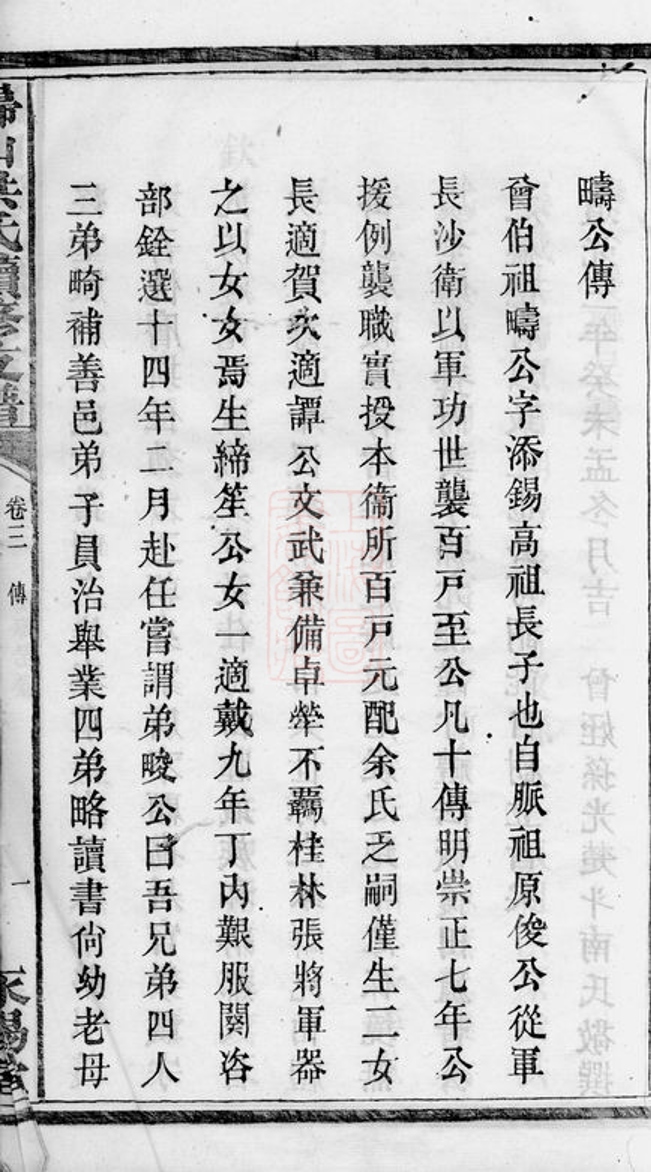 疇公傳
曾伯祖疇公字添錫高祖長子也自脈祖原俊公從軍
長沙衛以軍功世襲百戶至公凡十傳明崇正七年公
援例襲職實授本衞所百戶元配余氏乏嗣僅生二女
長適賀次適譚公文武兼備卓犖不羈桂林張將軍器
之以女女焉生締笙公女一適戴九年丁內艱服闋咨
部銓選十四年二月赴任嘗謂弟畯公曰吾兄弟四人
三弟畸補善邑弟子員治舉業四弟略讀書尙幼老母
洪氏續修支譜
卷三 傳
一